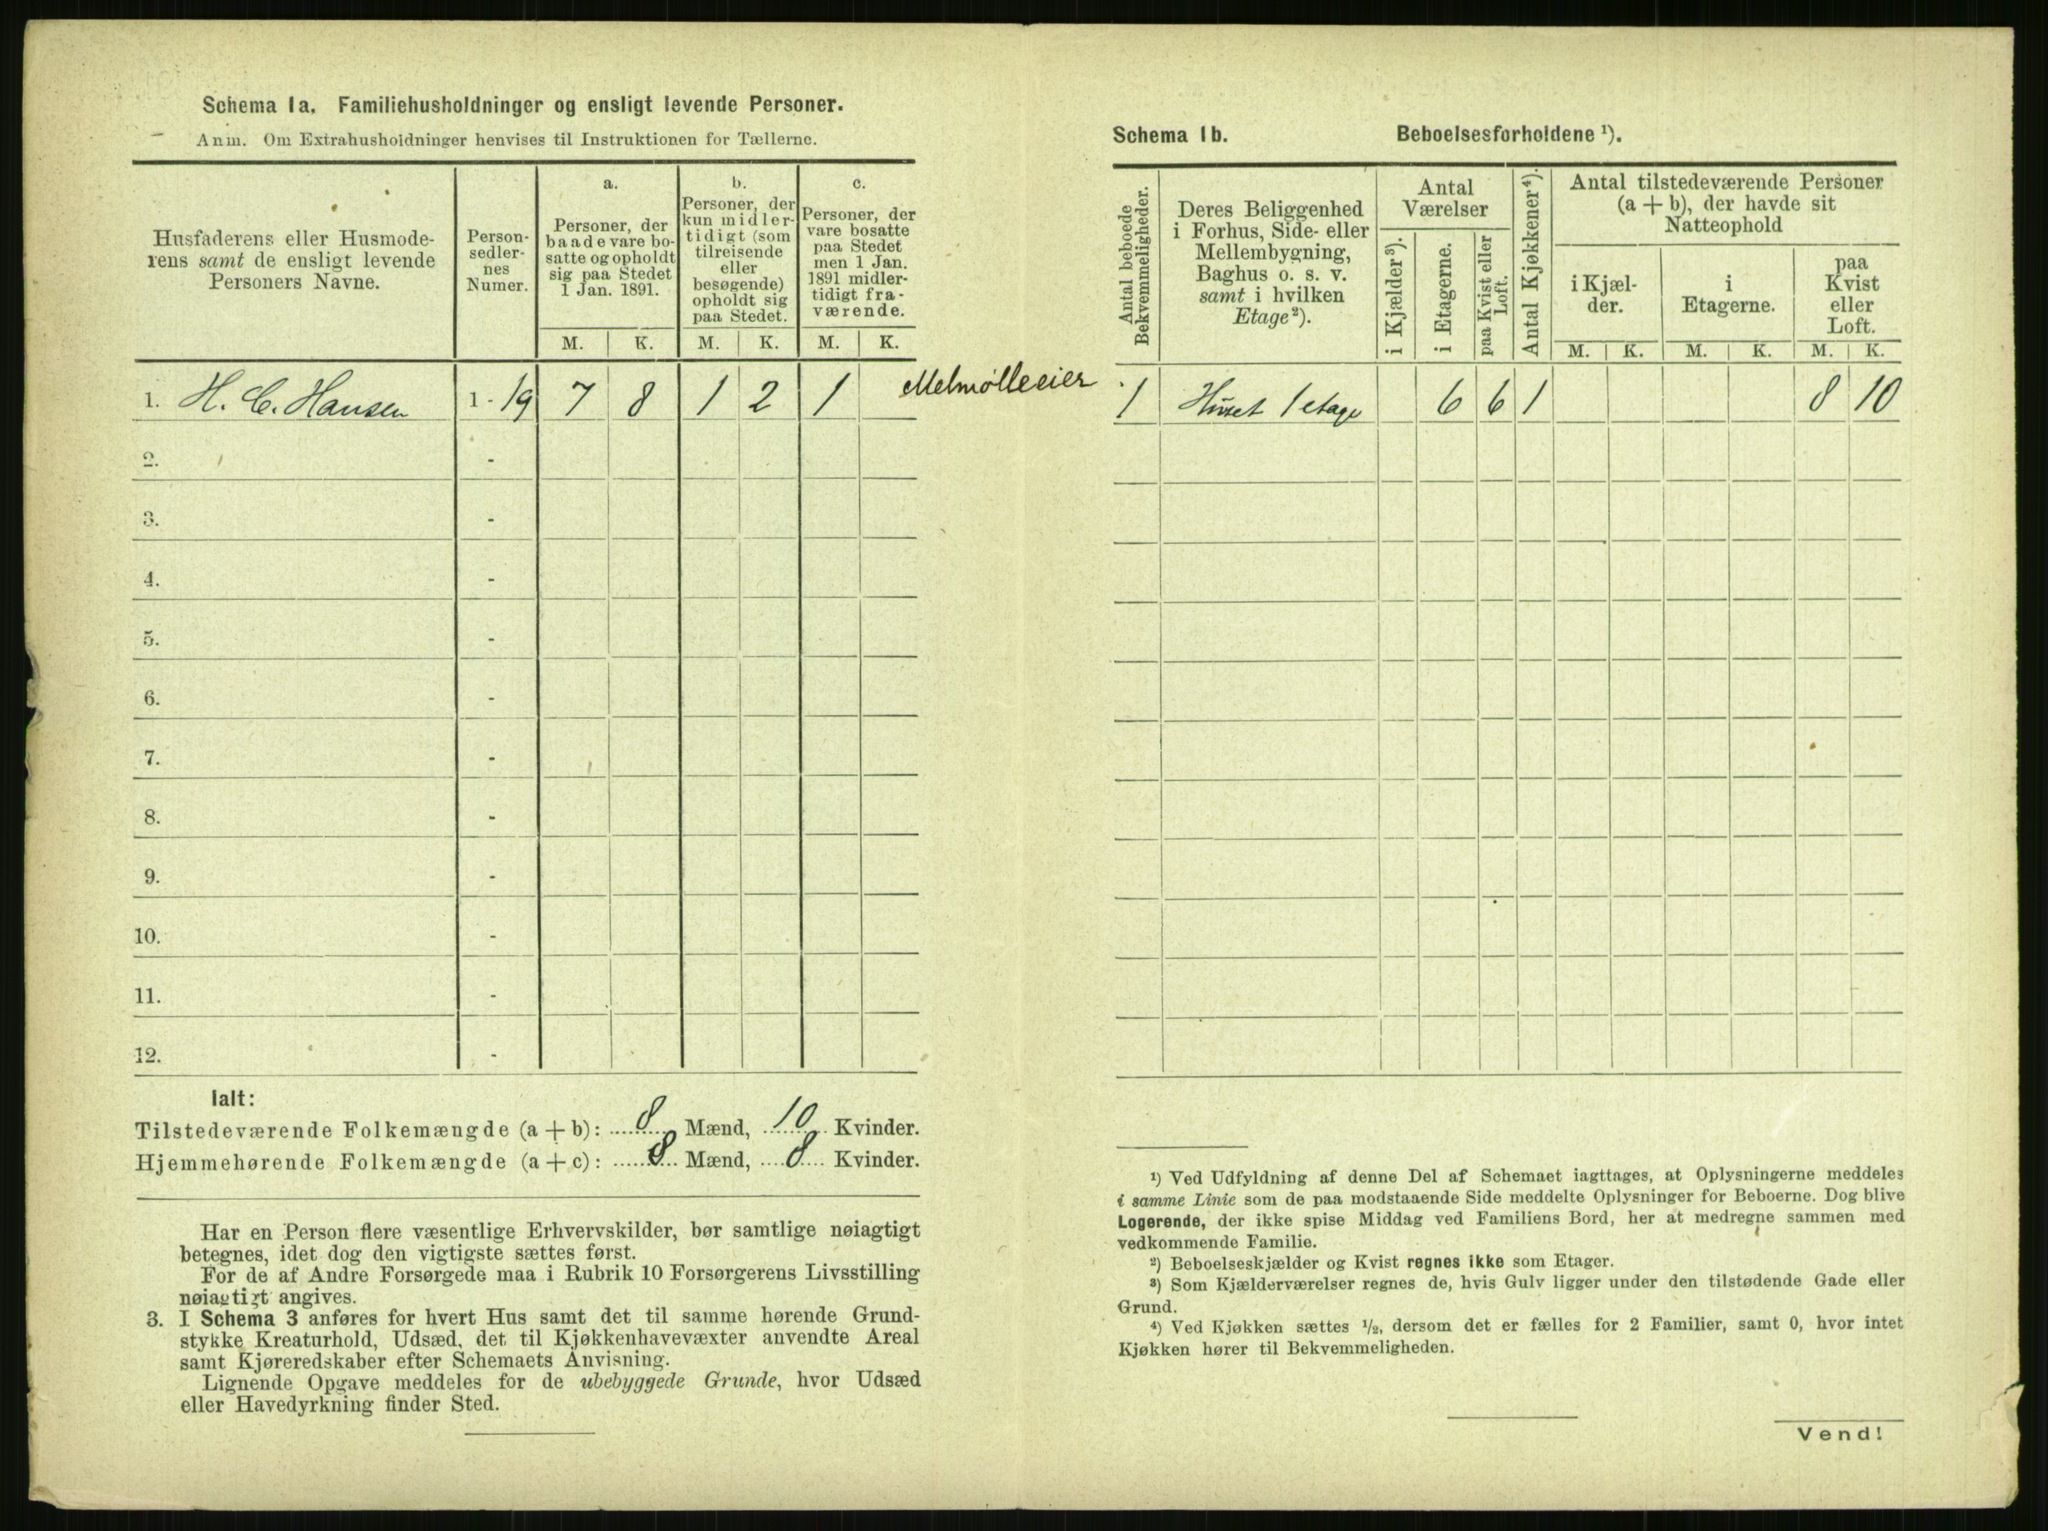 Schema 1a. Familiehusholdninger og ensligt levende Personer.
Anm. Om Extrahusholdninger henvises til Instruktionen for Tællerne.
Husfaderens eller Husmode-
rens samt de ensligt levende
Personers Navne.
Person-
sedler-
nes
Numer.
a.
Personer, der
baade vare bo-
satte og opholdt
sig paa Stedet
1 Jan. 1891.
b.
Personer, der
kun midler-
tidigt (som
tilreisende
eller
besøgende)
opholdt sig
paa Stedet.
c.
Personer, der
vare bosatte
paa Stedet
men 1 Jan.
1891 midler-
tidigt fra-
værende.
M. K. M. K. M. K.
1. H. C. Hansen 1 - 19 7 8 1 2 1 Melmølleeier
2. -
3. -
4. -
5. -
6. -
7. -
8. -
9. -
10. -
11. -
12. -
Ialt:
Tilstedeværende Folkemængde (a + b): 8 Mænd, 10 Kvinder.
Hjemmehørende Folkemængde (a + c): 8 Mænd, 8 Kvinder.
Har en Person flere væsentlige Erhvervskilder, bør samtlige nøiagtigt
betegnes, idet dog den vigtigste sættes først.
For de af Andre Forsørgede maa i Rubrik 10 Forsørgerens Livsstilling
nøiagtigt angives.
3. I Schema 3 anføres for hvert Hus samt det til samme hørende Grund-
stykke Kreaturhold, Udsæd, det til Kjøkkenhavevæxter anvendte Areal
samt Kjøreredskaber efter Schemaets Anvisning.
Lignende Opgave meddeles for de ubebyggede Grunde, hvor Udsæd
eller Havedyrkning finder Sted.
Schema 1b. Beboelsesforholdene ¹).
Antal beboede
Bekvemmeligheder.
Deres Beliggenhed
i Forhus, Side- eller
Mellembygning,
Baghus o. s. v.
samt i hvilken
Etage²).
Antal
Værelser
i Kjælder³).
i Etagerne.
paa Kvist eller
Loft.
Antal Kjøkkener⁴).
Antal tilstedeværende Personer
(a + b), der havde sit
Natteophold
i Kjæl-
der.
i
Etagerne.
paa
Kvist
eller
Loft.
M. K. M. K. M. K.
1 Huset 1 etage 6 6 1 8 10
¹) Ved Udfyldning af denne Del af Schemaet iagttages, at Oplysningerne meddeles
i samme Linie som de paa modstaaende Side meddelte Oplysninger for Beboerne. Dog blive
Logerende, der ikke spise Middag ved Familiens Bord, her at medregne sammen med
vedkommende Familie.
²) Beboelseskjælder og Kvist regnes ikke som Etager.
³) Som Kjælderværelser regnes de, hvis Gulv ligger under den tilstødende Gade eller
Grund.
⁴) Ved Kjøkken sættes ½, dersom det er fælles for 2 Familier, samt 0, hvor intet
Kjøkken hører til Bekvemmeligheden.
Vend!